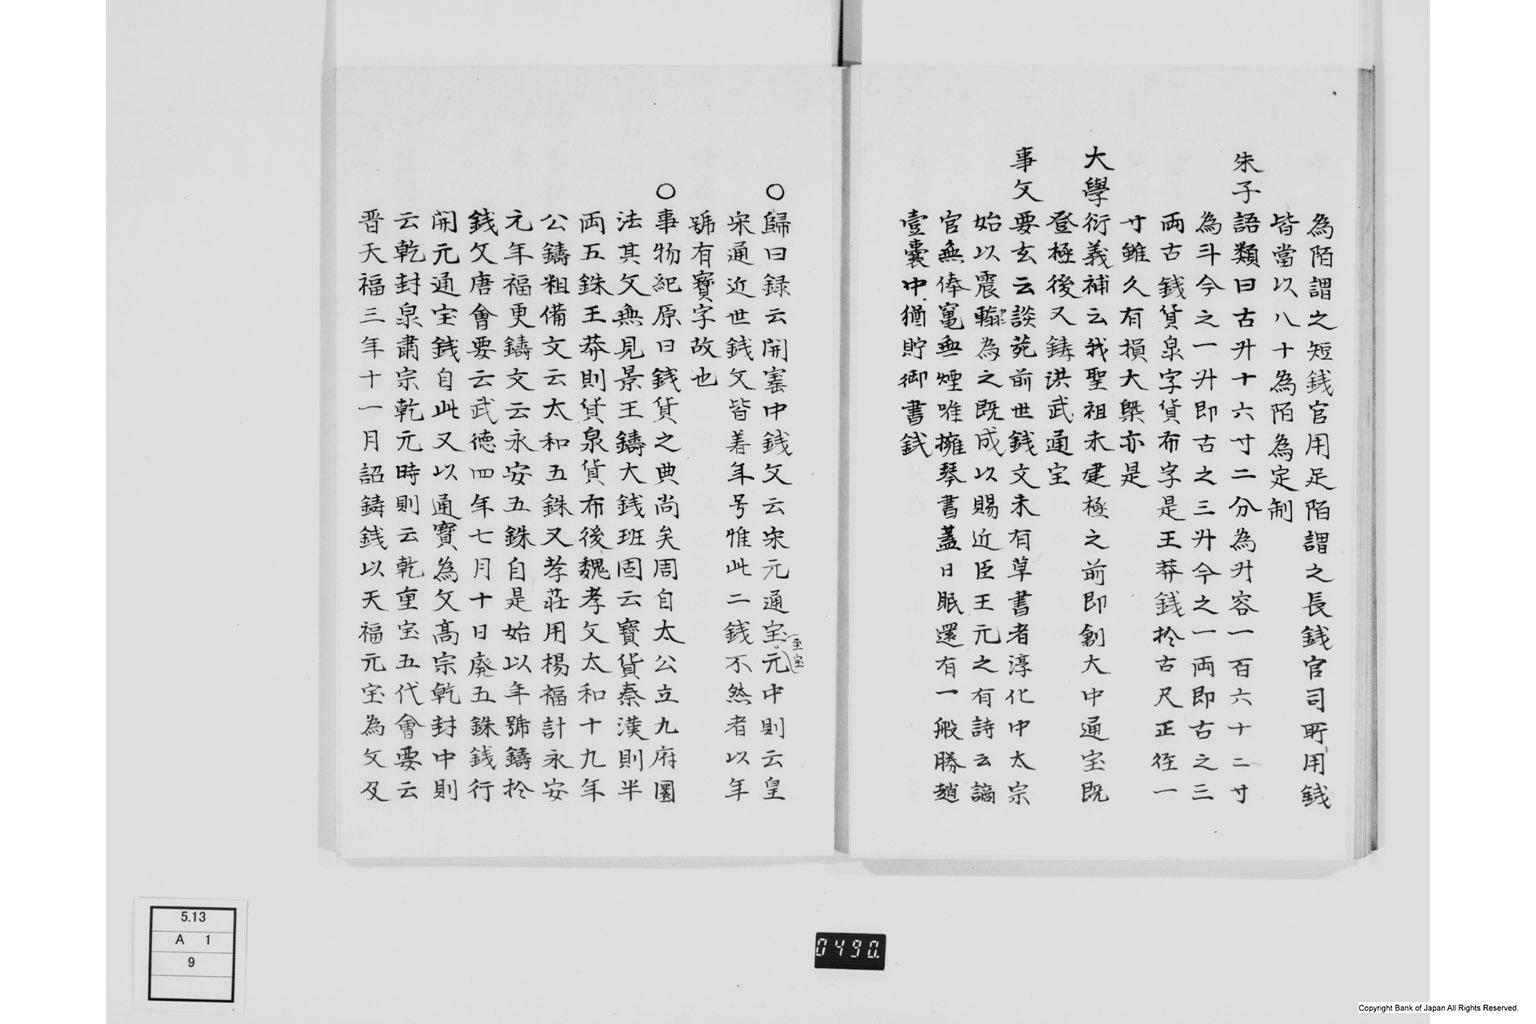 為陌謂之短錢官用足陌謂之長錢官司所用錢
皆當以八十為陌為定制
朱子語類曰古升十六寸二分為升容一百六十二寸
為斗今之一升即古之三升今之一両即古之三
両古錢貨泉字貨布字是王莽錢於古尺正徑一
寸雖久有損大槩亦是
大學衍義補云我聖祖未建極之前即創大中通宝既
登極後又鋳洪武通宝
事文要玄云談苑前世錢文未有草書者淳化中太宗
始以震翰為之既成以賜近臣王元之有詩云謫
官無俸竃無煙唯擁琴書盖日眠還有一般勝趙
壹囊中猶貯御書錢
○歸田録云開寳中錢文云宋元通宝元中則云皇
(至宝)
宋通近世錢文皆着年号惟此二錢不然者以年
號有寶字故也
○事物紀原曰錢貨之典尚矣周自太公立九府圜
法其文無見景王鑄大錢班固云寶貨秦漢則半
両五銖王莽則貨泉貨布後魏孝文太和十九年
公鑄粗備文云太和五銖又孝莊用楊福計永安
元年福更鑄文云永安五銖自是始以年號鑄於
錢文唐會要云武德四年七月十日廢五銖錢行
開元通宝錢自此又以通寶為文髙宗乾封中則
云乾封泉肅宗乾元時則云乾重宝五代會要云
晋天福三年十一月詔鑄錢以天福元宝為文及
5.13
A 1
9
0490.
Copyright Bank of Japan All Rights Reserved.